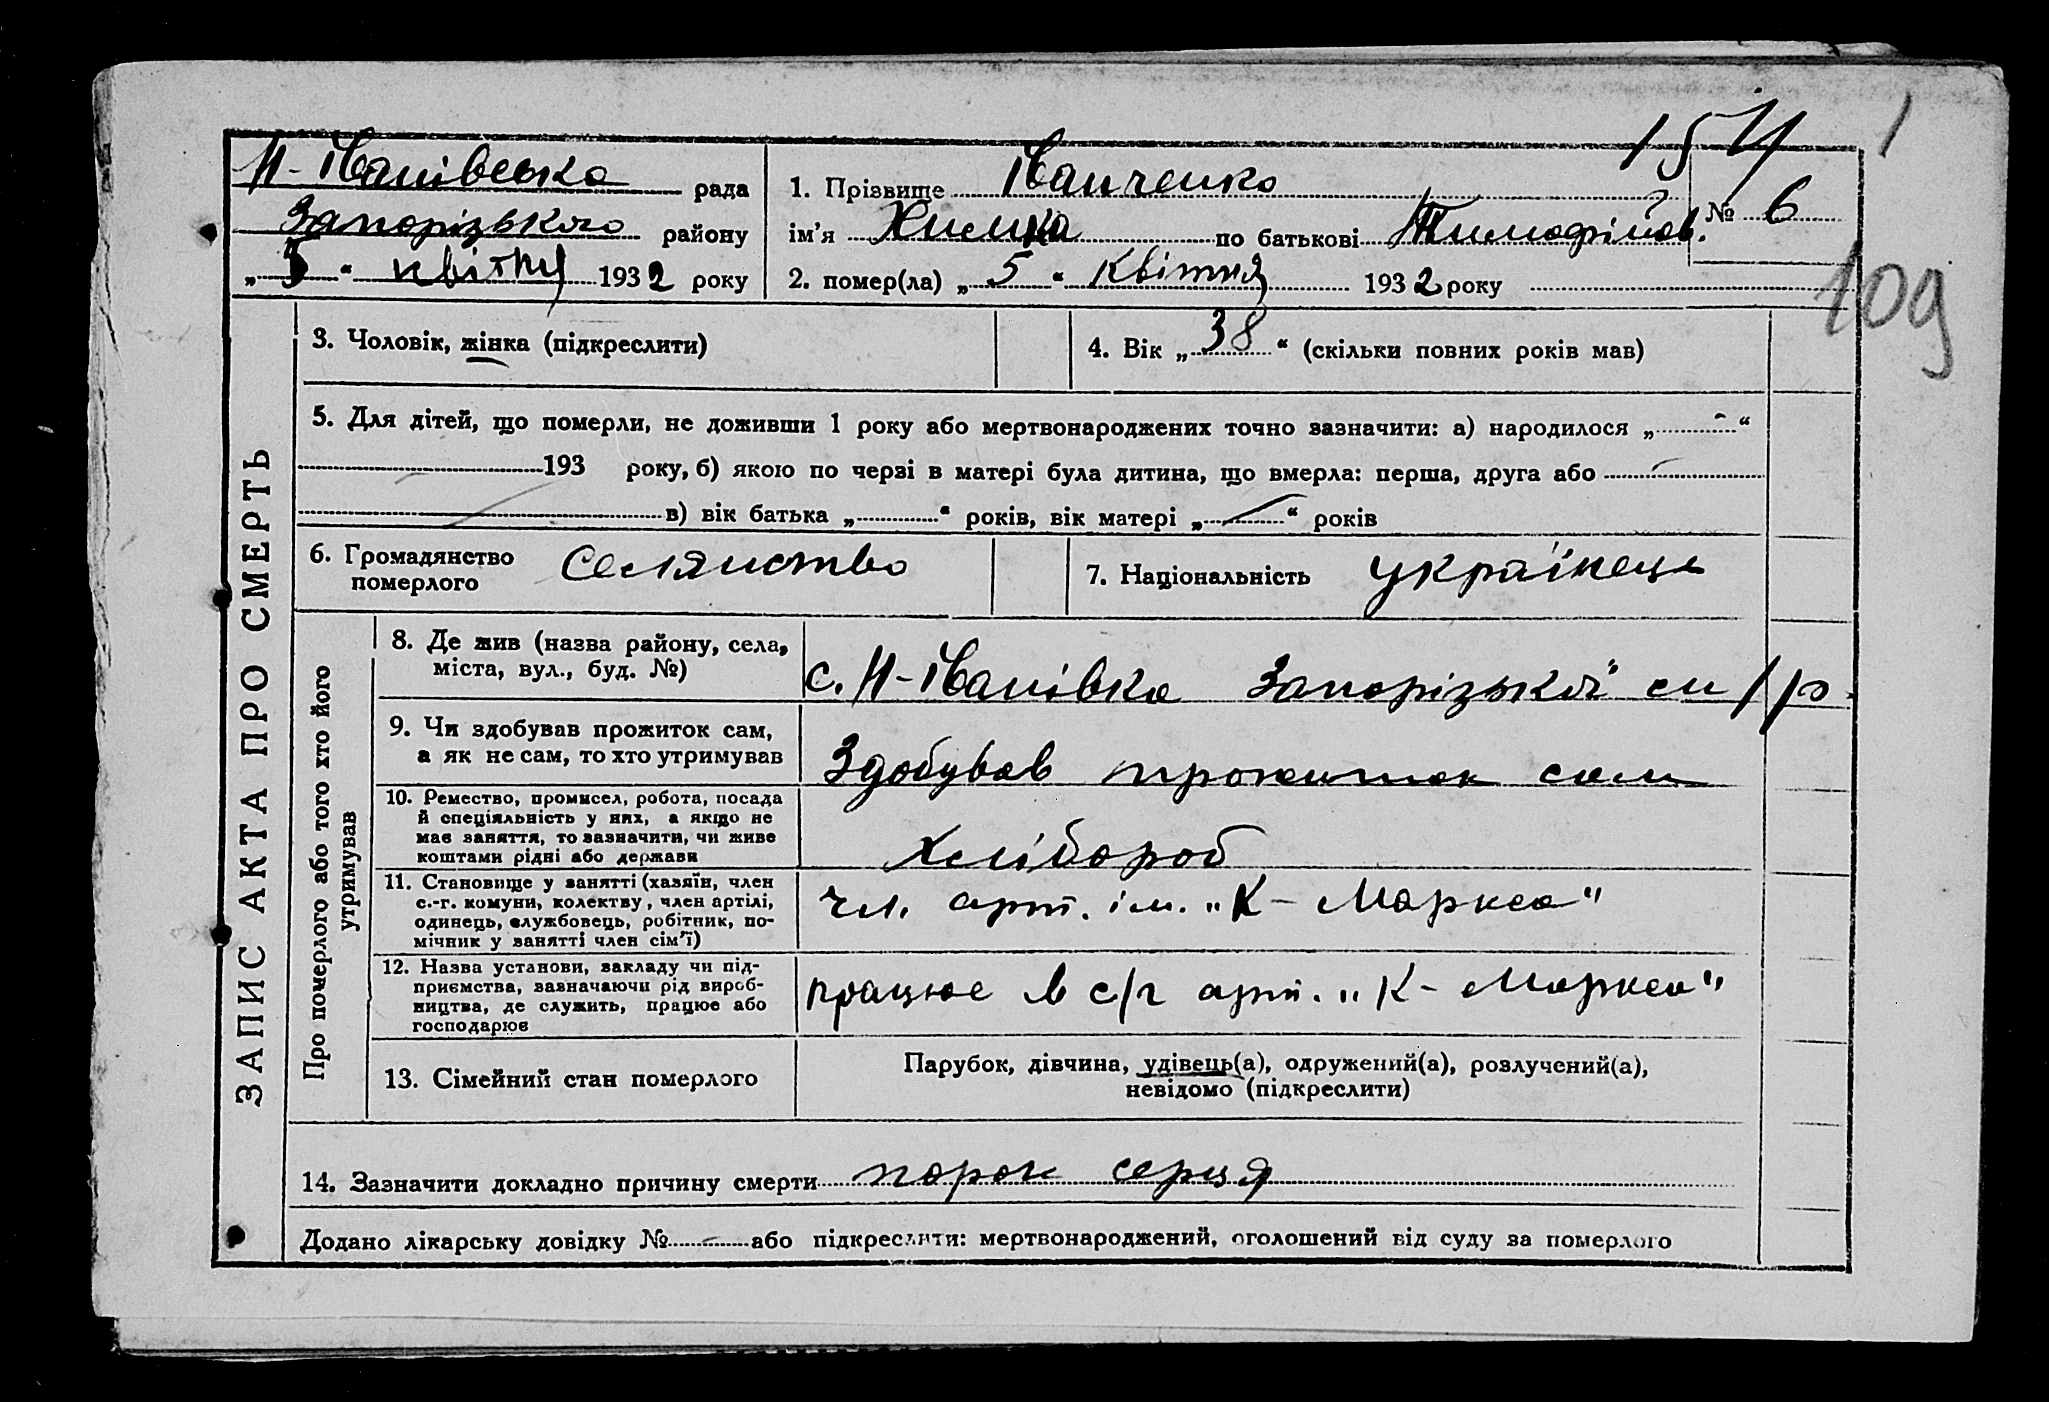 154
1
Н-Іванівська рада
Запорізького району
„5“ квітня 1932 року
1. Прізвище Іванченко
ім’я Химка по батькові Тимофійов.
№ 6
2. помер(ла) „5“ Квітня 1932 року
109
ЗАПИС АКТА ПРО СМЕРТЬ
3. Чоловік, жінка (підкреслити)
4. Вік „38“ (скільки повних років мав)
5. Для дітей, що померли, не доживши 1 року або мертвонароджених точно зазначити: а) народилося „-“
193 року, б) якою по черзі в матері була дитина, що вмерла: перша, друга або
в) вік батька „ “ років, вік матері „ “ років
6. Громадянство
померлого
селянство
7. Національність українець
Про померлого або того хто його
утримував
8. Де жив (назва району, села,
міста, вул., буд. №)
с. Н-Іванівка Запорізької см/р.
9. Чи здобував прожиток сам,
а як не сам, то хто утримував
Здобував прожиток сам
10. Ремество, промисел, робота, посада
й спеціяльність у них, а якщо не
має заняття, то зазначити, чи живе
коштами рідні або держави
хлібороб
11. Становище у занятті (хазяїн, член
с.-г. комуни, колектву, член артілі,
одинець, службовець, робітник, по-
мічник у занятті член сім’ї)
чл. арт. ім. „К-Маркса“
12. Назва установи, закладу чи під-
приємства, зазначаючи рід вироб-
ництва, де служить, працює або
господарює
працює в с/г арт. „К-Маркса“
13. Сімейний стан померлого
Парубок, дівчина, удівець(а), одружений(а), розлучений(а),
невідомо (підкреслити)
14. Зазначити докладно причину смерти порок серця
Додано лікарську довідку № - або підкреслити: мертвонароджений, оголошений від суду за померлого